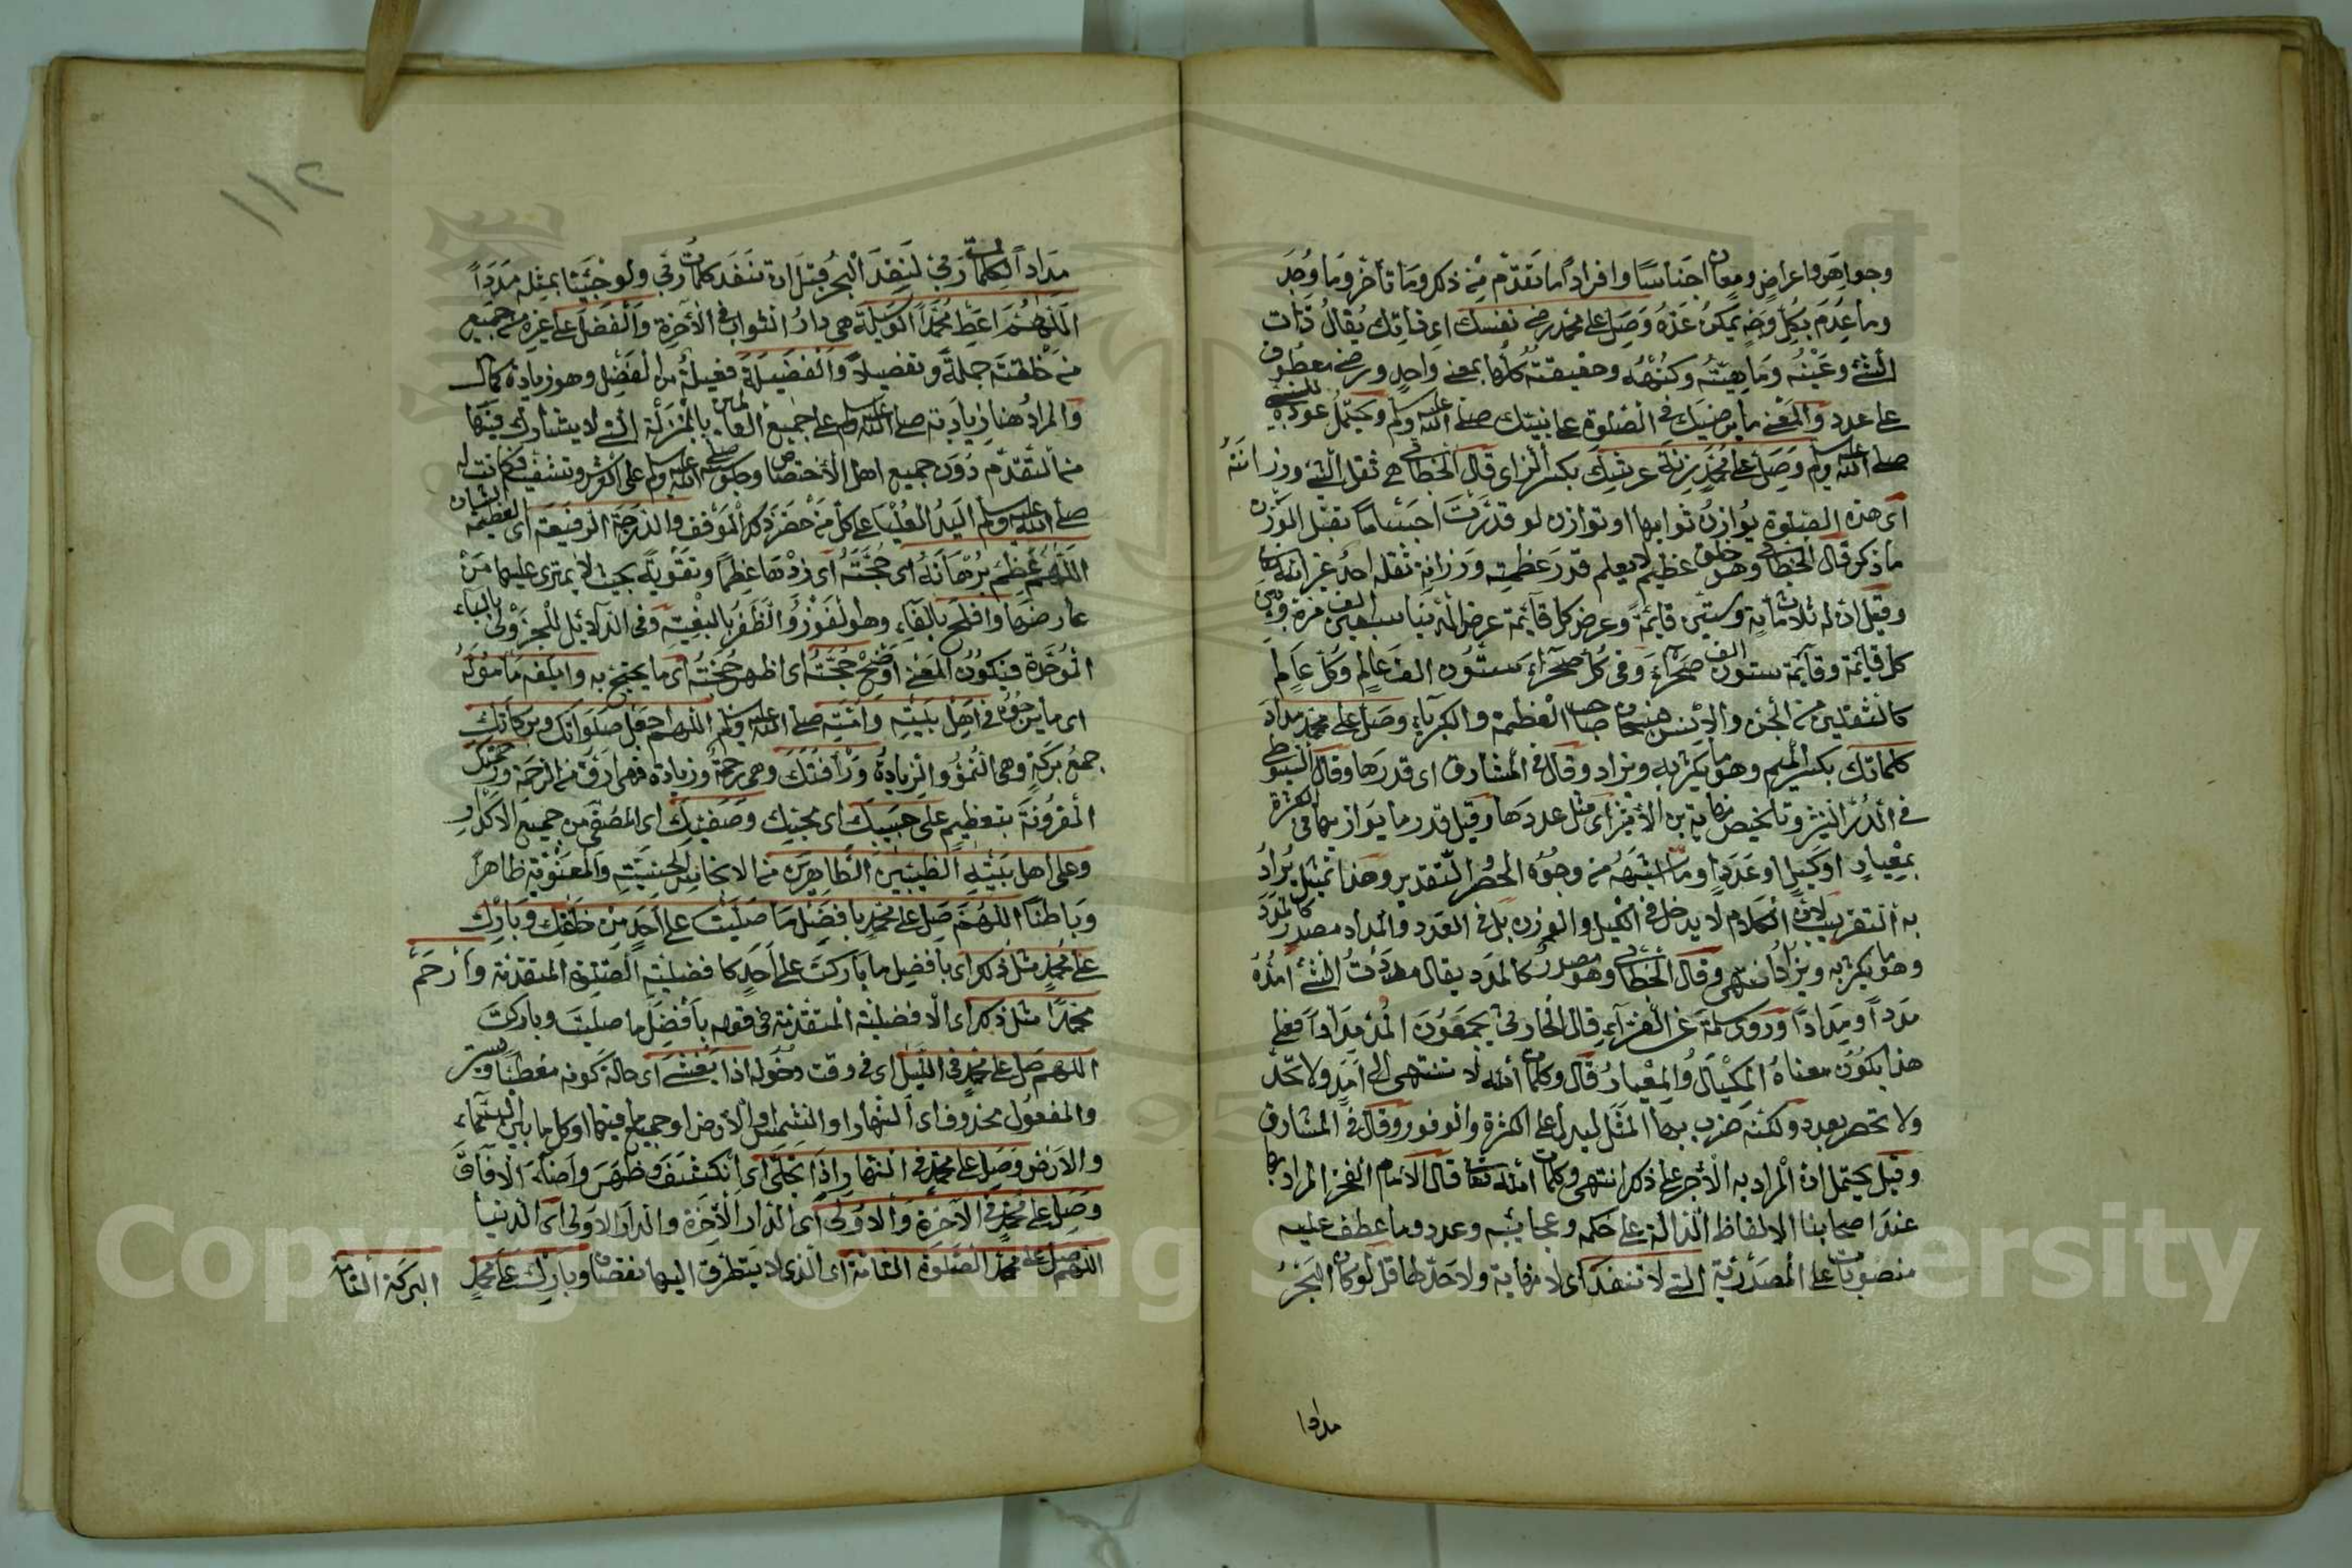 وجواهر واعراض ومعان اجناسا وافرادا ما تقدم من ذكر وما تأخر وما وجد
وما عدم بكل وجه يمكن عده وصل على محمد رضى نفسك اى ذاتك يقال ذات
الشئ وعينه وماهيته وكنهه وحقيقته كلها بمعنى واحد ورضى معطوف
على عدد والمعنى ما يرضيك فى الصلوة على نبيك صلى الله عليه وسلم ويحتمل عوده للنبى
صلى الله عليه وسلم وصل على محمد بزنة عرشك بكسر الزاى قال الخطابى هى ثقل الشئ ورزانته
اى هذه الصلوة يوازن ثوابها او توازن لو قدرت اجساما تقبل الوزن
ما ذكر قال الخطابى وهو خلق عظيم لا يعلم قدر عظمته ورزانة ثقله احد غير الله تعالى
وقيل ان له ثلاثمائة وستين قائمة وعرض كل قائمة عرض الدنيا سبعين الف مرة وبين
كل قائمة وقائمة ستون الف صحراء وفى كل صحراء ستون الف عالم وكل عالم
كالثقلين من الجن والانس فسبحان صاحب العظمة والكبرياء وصل على محمد مداد
كلماتك بكسر الميم وهو ما يكثر به ويزاد وقال فى المشارق اى قدرها وقال السيوطى
فى الدر النثير وتلخيص نهاية ابن الاثير اى مثل عددها وقيل قدر ما يوازيها فى الكثرة
بمعيار او كيل او عدد او ما اشبهه من وجوه الحصر والتقدير وهذا تمثيل يراد
به التقريب لان الكلام لا يدخل فى الكيل والوزن بل فى العدد والمداد مصدر كالمدد
وهو ما يكثر به ويزاد انتهى وقال الخطابى وهو مصدر كالمدد يقال مددت الشئ امده
مددا ومدادا وروى سلمة عن الفراء قال الحارثى يجمعون المد مدادا فعلى
هذا يكون معناه المكيال والمعيار قال وكلمات الله لا تنتهى الى امد ولا تحد
ولا تحصر بعدد ولكنه ضرب بها المثل ليدل على الكثرة والوفور وقال فى المشارق
وقيل يحتمل ان المراد به الاجر على ذكر انتهى وكلمات الله تعالى قال الامام الفخر المراد بها
عند اصحابنا الالفاظ الدالة على حكمه وعجائبه وعدد وما عطف عليه
منصوبات على المصدرية التى لا تنفد اى لا نهاية ولا حد لها قل لو كان البحر
مدادا
١١٢
مدادا لكلمات ربى لنفد البحر قبل ان تنفد كلمات ربى ولو جئنا بمثله مددا
اللهم اعط محمدا الوسيلة هى دار الثواب فى الآخرة والفضل على غيره من جميع
من خلقته جملة وتفصيلا والفضيلة فعيلة من الفضل وهو زيادة كمال
والمراد هنا زيادته صلى الله عليه وسلم على جميع العالمين بالمنزلة التى لا يشارك فيها
من التقدم دون جميع اهل الاختصاص وجلوسه صلى الله عليه وسلم على العرش وتشفيعه فكانت له
صلى الله عليه وسلم اليد العليا على كل من حضر ذلك الموقف والدرجة الرفيعة اى العظيمة الشان
اللهم عظم برهانه اى حجته اى زدها عظما وتقوية بحيث لا يمترى عليها من
عارضها وافلح بالفاء وهو الفوز والظفر بالبغية وفى الدلائل للجزولى بالباء
الموحدة فيكون المعنى اوضح حجته اى اظهر حجته اى ما يحتج به وابلغه مأموله
اى ما يرجوه فى اهل بيته وامته صلى الله عليه وسلم اللهم اجعل صلواتك وبركاتك
جمع بركة وهى النمو والزيادة ورأفتك وهى رحمة وزيادة فهى ارق من الرحمة ورحمتك
المقرونة بتعظيم على حبيبك اى محبك وصفيك اى المصفى من جميع الاكدار
وعلى اهل بيته الطيبين الطاهرين من الانجاس الحسية والمعنوية ظاهرا
وباطنا اللهم صل على محمد بافضل ما صليت على احد من خلقك وبارك
على محمد مثل ذلك اى بافضل ما باركت على احد كافضلية الصلوة المتقدمة وارحم
محمدا مثل ذلك اى الافضلية المتقدمة فى قوله بأفضل ما صليت وباركت
اللهم صل على محمد فى الليل اى فى وقت دخوله اذا يغشى اى حالة كونه مغطيا ويستر
والمفعول محذوف اى النهار او الشمس او الارض او جميع ما فيها او كل ما بين السماء
والارض وصل على محمد فى النهار اذا تجلى اى انكشف وظهر واضاء الآفاق
وصل على محمد فى الآخرة والاولى اى الدار الآخرة والدار الاولى اى الدنيا
اللهم صل على محمد الصلوة التامة اى الذى لا يتطرق اليها نقصان وبارك على محمد
البركة التامة
Copyright © King Saud University